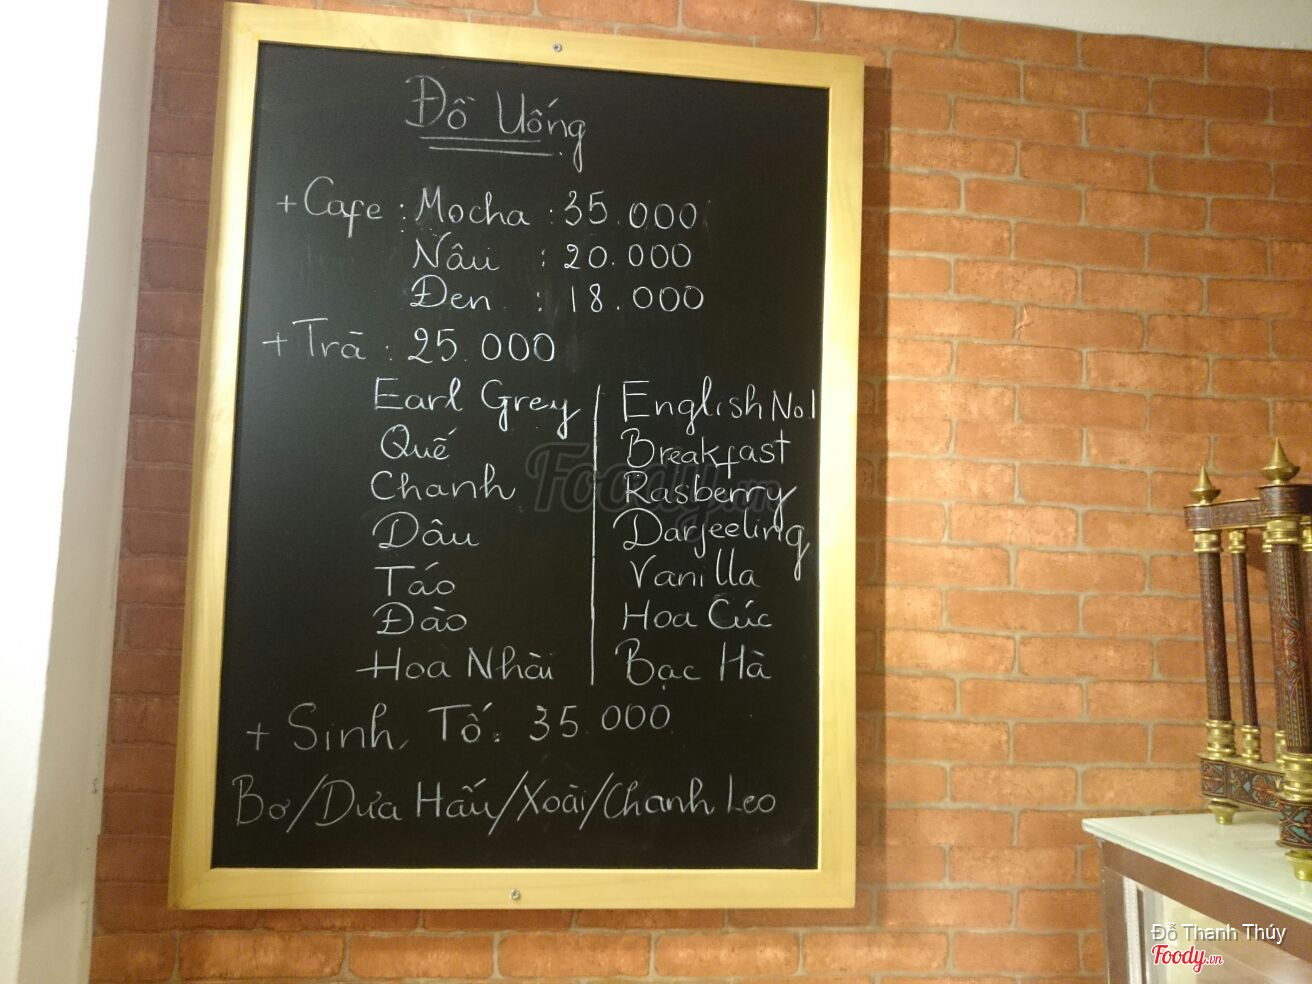 Đồ Uống
+ Cafe : Mocha : 35.000
Nâu : 20.000
Đen : 18.000
+ Trà : 25.000
Earl Grey | English No.1
Quế | Breakfast
Chanh | Rasberry
Dâu | Darjeeling
Táo | Vanilla
Đào | Hoa Cúc
Hoa Nhài | Bạc Hà
+ Sinh Tố : 35.000
Bơ/Dưa Hấu/Xoài/Chanh Leo
Foody.vn
Đỗ Thanh Thúy
Foody.vn